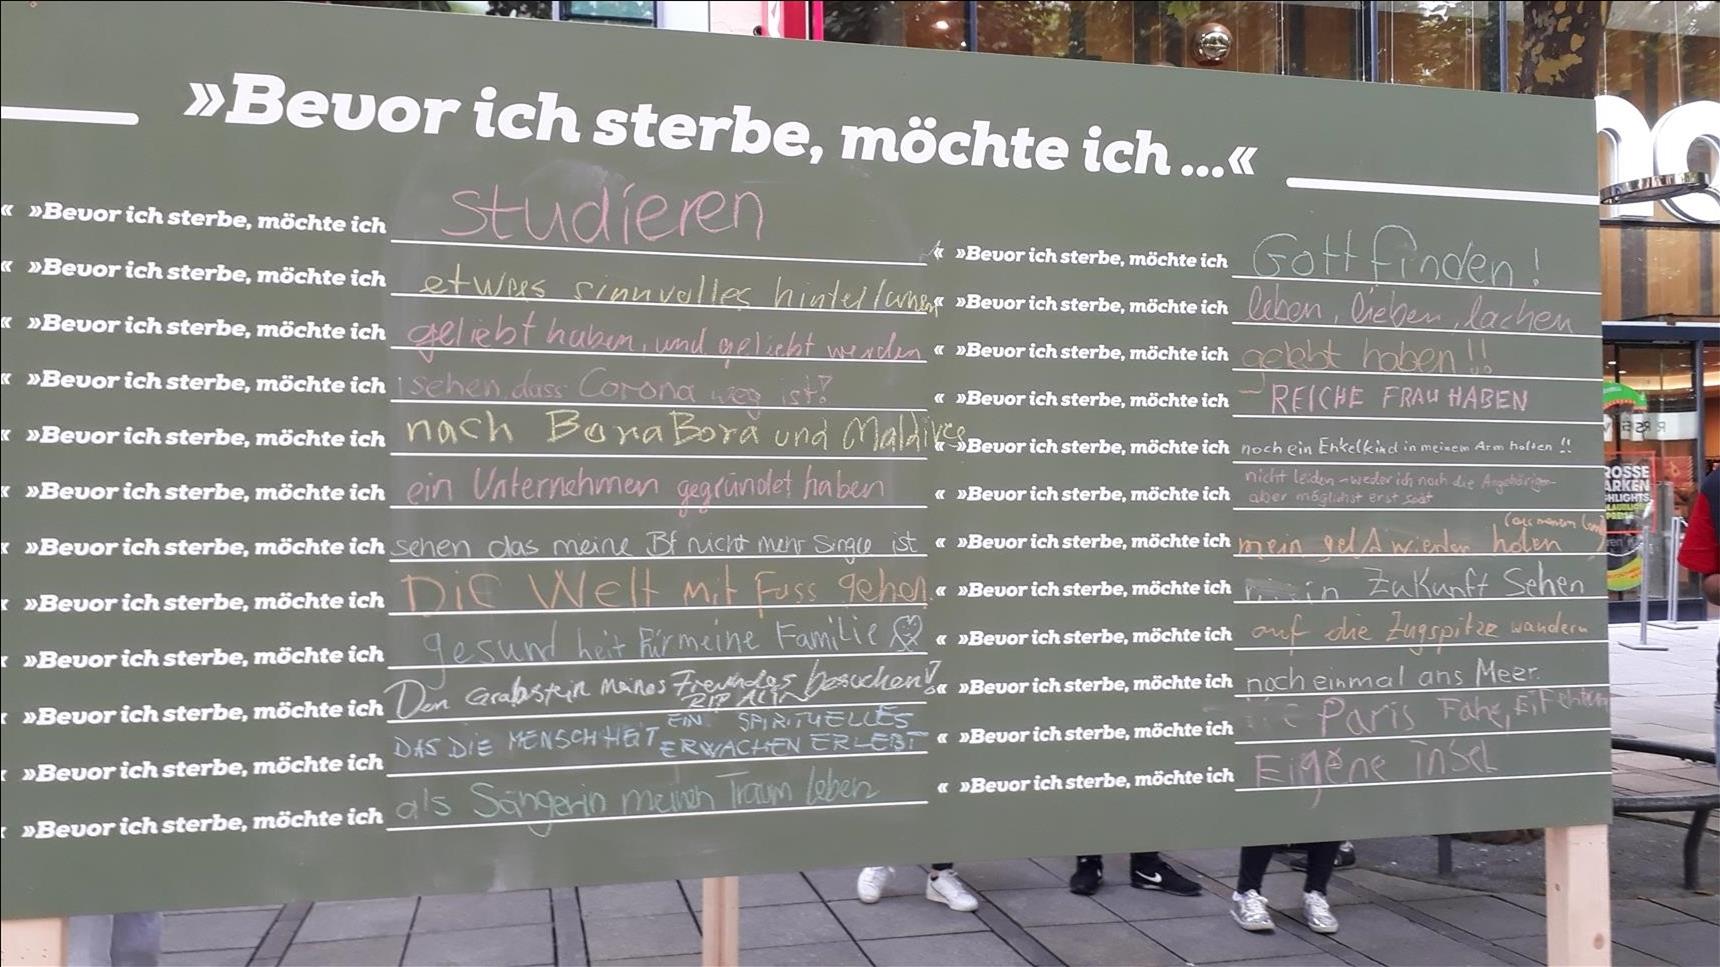 »Bevor ich sterbe, möchte ich ...«
« »Bevor ich sterbe, möchte ich studieren
« »Bevor ich sterbe, möchte ich etwas sinnvolles hinterlassen
« »Bevor ich sterbe, möchte ich geliebt haben, und geliebt werden
« »Bevor ich sterbe, möchte ich sehen, dass Corona weg ist!
« »Bevor ich sterbe, möchte ich nach BoraBora und Maldives
« »Bevor ich sterbe, möchte ich ein Unternehmen gegründet haben
« »Bevor ich sterbe, möchte ich sehen das meine Bf nicht mehr Single ist
« »Bevor ich sterbe, möchte ich DiE WElt mit Fuss gehen.
« »Bevor ich sterbe, möchte ich gesund heit Für meine Familie
« »Bevor ich sterbe, möchte ich Den Grabstein meines Freundes besuchen!
RIP ALIN
« »Bevor ich sterbe, möchte ich DAS DIE MENSCHHEIT EIN SPIRITUELLES
ERWACHEN ERLEBT
« »Bevor ich sterbe, möchte ich als Sängerin meinen Traum leben
« »Bevor ich sterbe, möchte ich Gott finden!
« »Bevor ich sterbe, möchte ich leben, lieben, lachen
« »Bevor ich sterbe, möchte ich gelebt haben!!
« »Bevor ich sterbe, möchte ich - REICHE FRAU HABEN
« »Bevor ich sterbe, möchte ich noch ein Enkelkind in meinem Arm halten !!
« »Bevor ich sterbe, möchte ich nicht leiden - weder ich noch die Angehörigen -
aber möglichst erst spät
« »Bevor ich sterbe, möchte ich mein geld wieder holen
(aus meinem
« »Bevor ich sterbe, möchte ich mein Zukunft Sehen
« »Bevor ich sterbe, möchte ich auf die Zugspitze wandern
« »Bevor ich sterbe, möchte ich noch einmal ans Meer.
« »Bevor ich sterbe, möchte ich Paris
« »Bevor ich sterbe, möchte ich Eigene insel
ROSSE
ARKEN